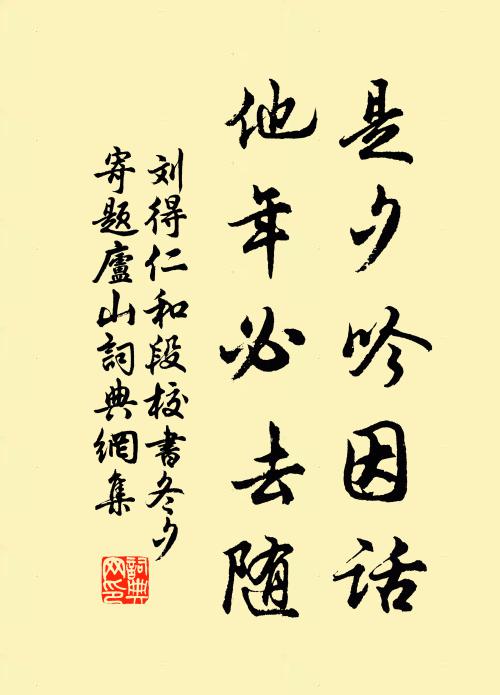 是夕吟因话
他年必去随
刘得仁和段校書冬夕
寄题廬山詞典網集
詞典网印